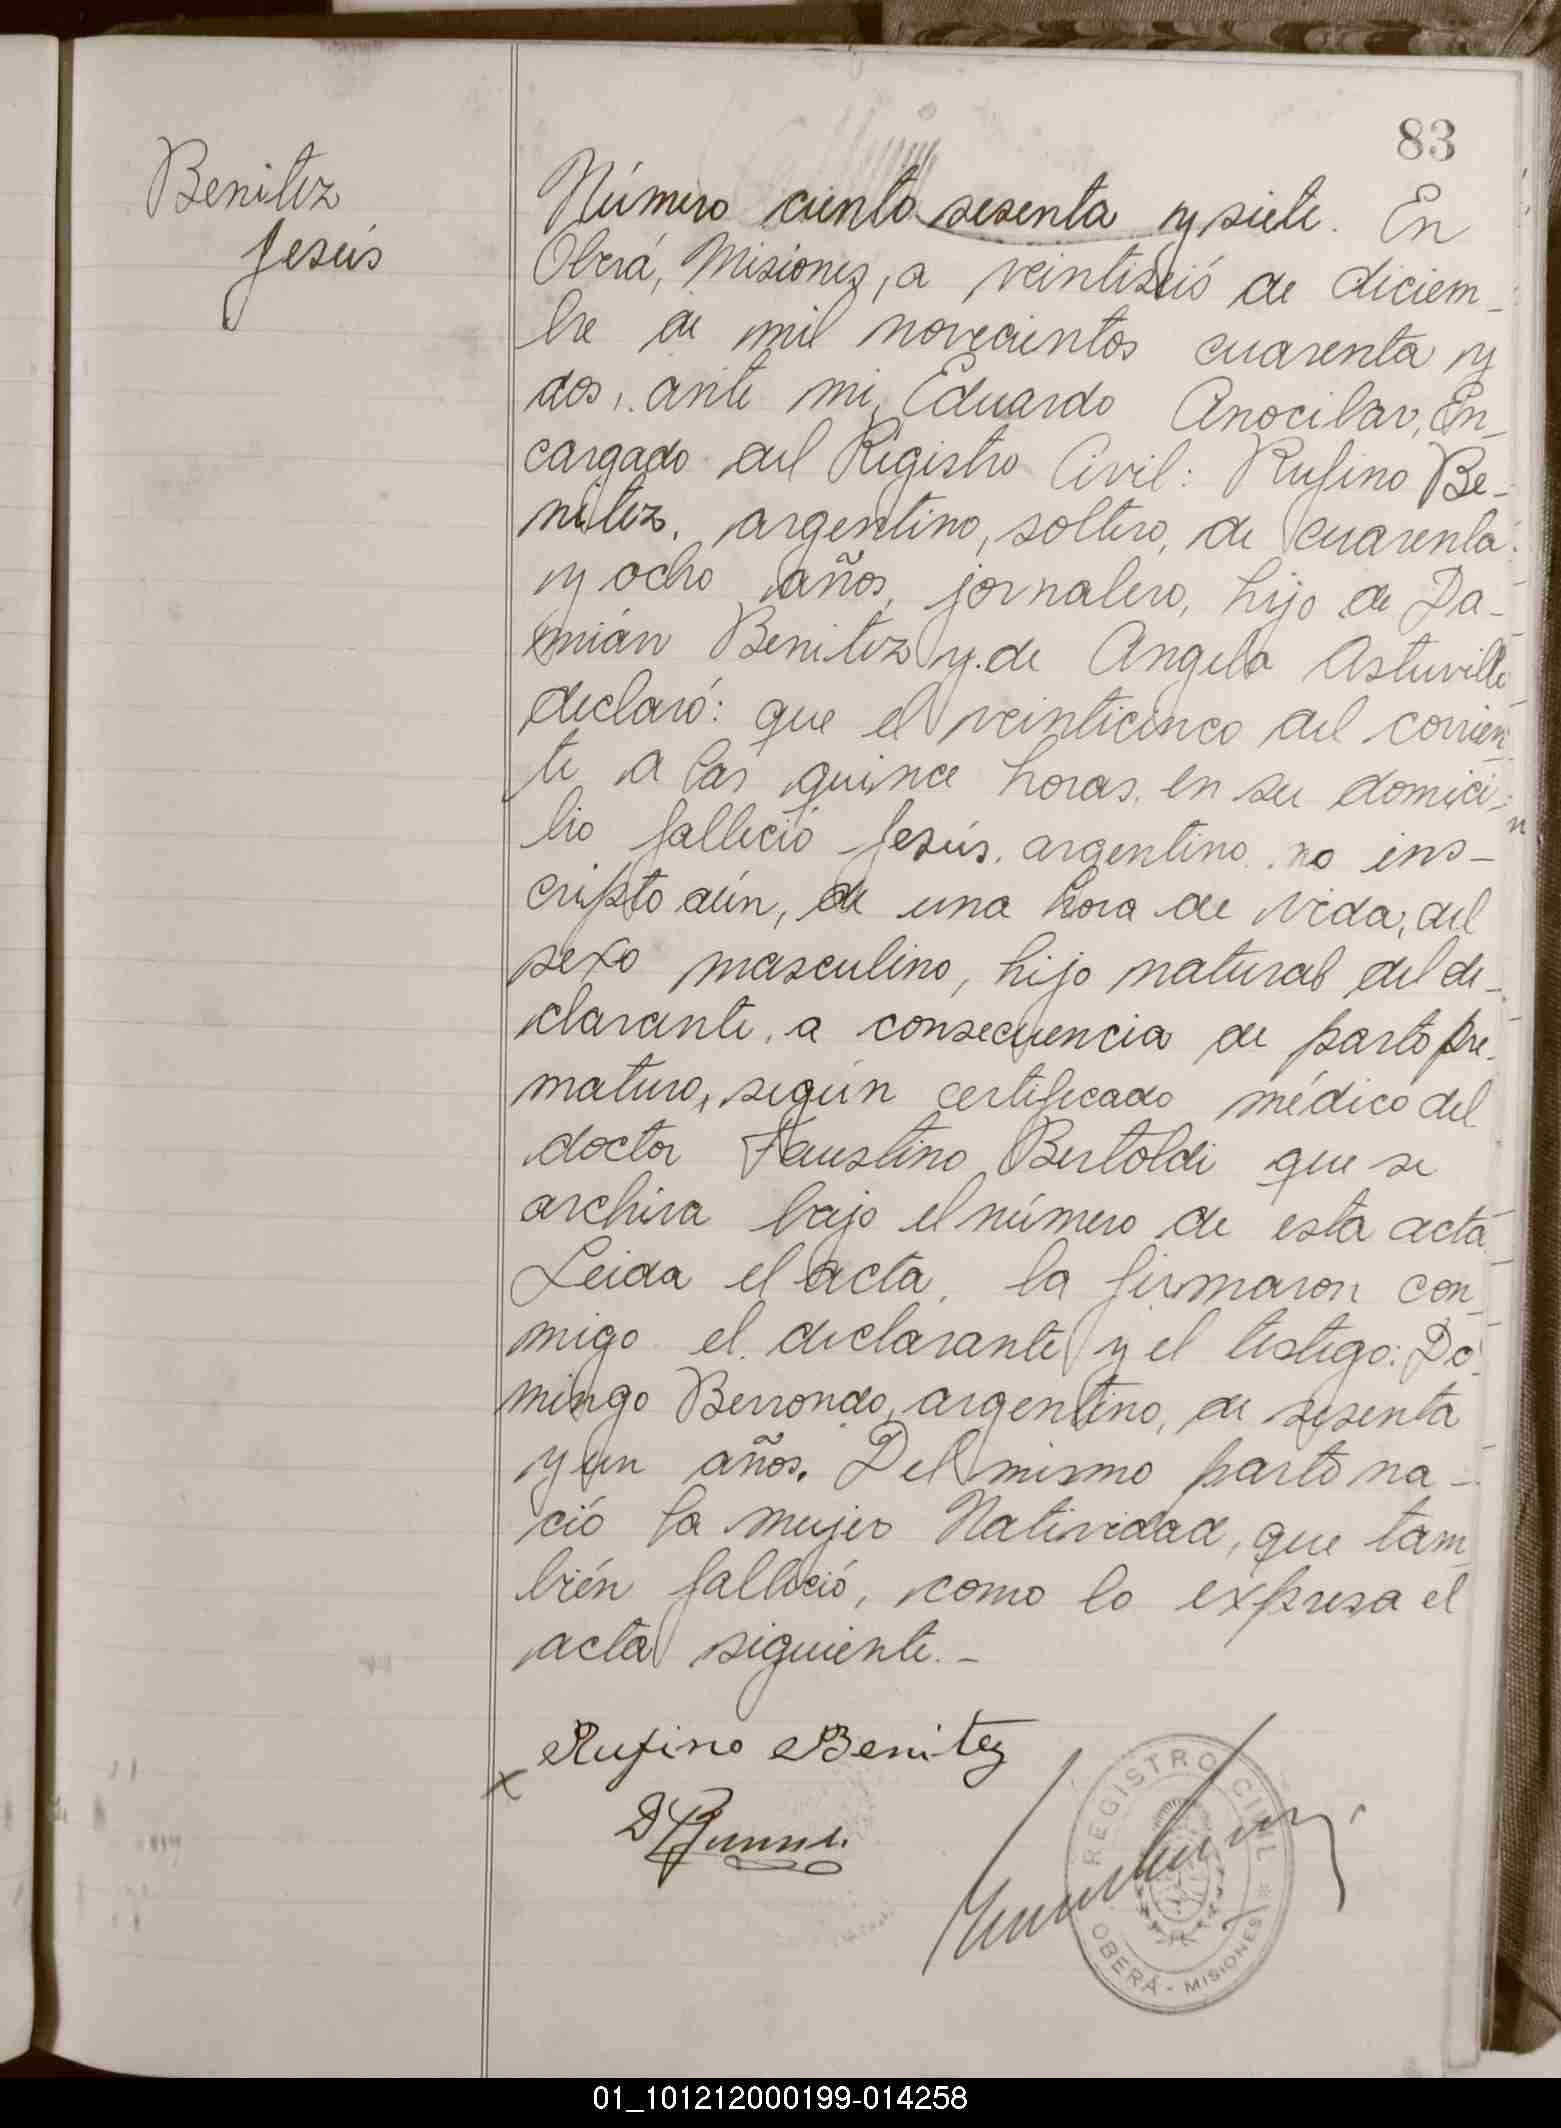 83
Benitez
Jesús
Número ciento sesenta y siete. En
Oberá, Misiones, a veintiseis de diciem-
bre de mil novecientos cuarenta y
dos, ante mi, Eduardo Anocibar, En-
cargado del Registro Civil: Rufino Be-
nitez, argentino, soltero, de cuarenta
y ocho años, jornalero, hijo de Da-
mián Benitez y de Angela
declaró: que el veinticinco del corrien-
te a las quince horas, en su domici-
lio falleció Jesús, argentino, no ins-
cripto aún, de una hora de vida, del
sexo masculino, hijo natural del de-
clarante, a consecuencia de parto pre-
maturo, según certificado médico del
doctor Faustino Bertoldi que se
archiva bajo el número de esta acta.
Leida el acta, la firmaron con-
migo el declarante y el testigo: Do-
mingo Berrondo, argentino, de sesenta
y un años. Del mismo parto na-
ció la mujer Natividad, que tam-
bién falleció, como lo expresa el
acta siguiente.-
Rufino Benitez
REGISTRO CIVIL
OBERÁ - MISIONES
01_101212000199-014258